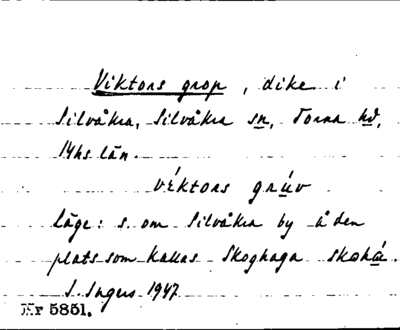 Viktors grop, dike i
Silvåkra, Silvåkra sn, Torna hd,
Mhs län.
véktors grúv
Läge: s. om Silvåkra by å den
plats som kallas Skoghaga skohá.
I. Ingers 1947
Nr 5851.